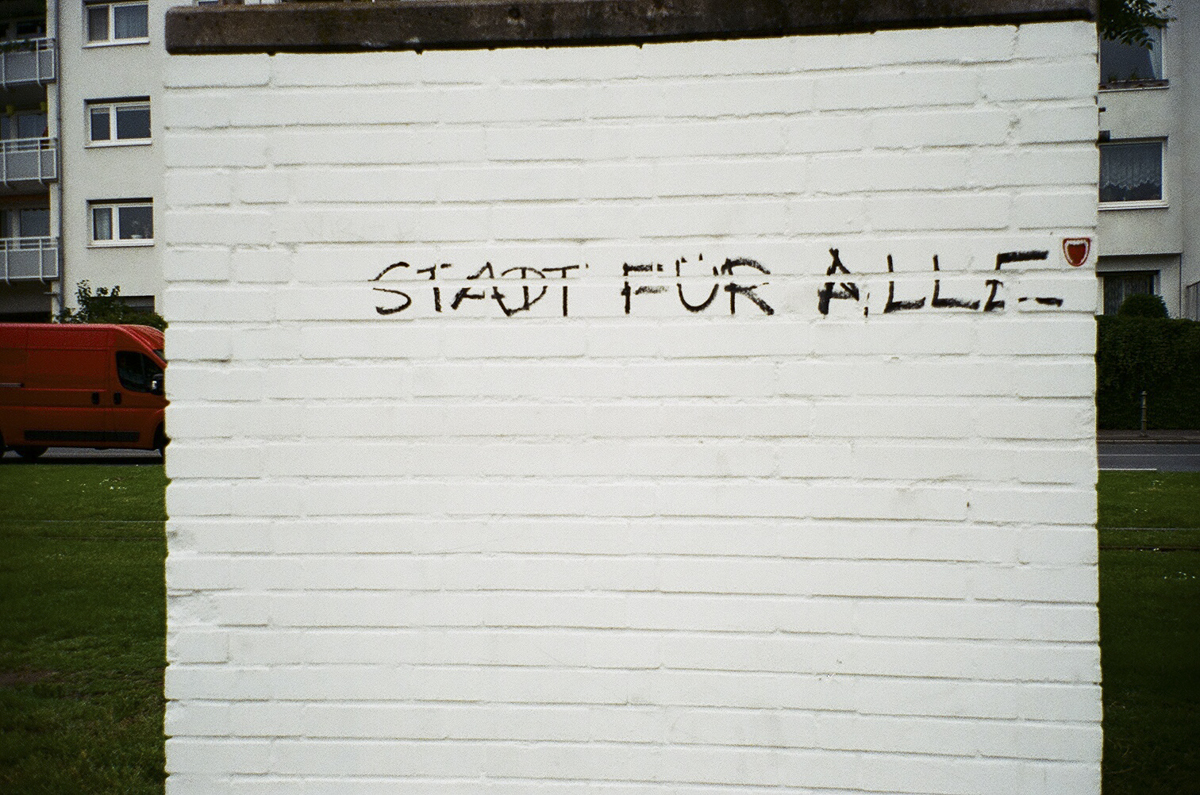 STADT FÜR ALLE